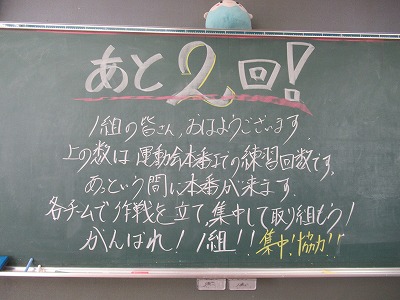 あと2回!
1組の皆さん,おはようございます.
上の数は運動会本番までの練習回数です.
あっという間に本番が来ます.
各チームで作戦を立て,集中して取り組もう!
がんばれ!1組!!集中!協力!!